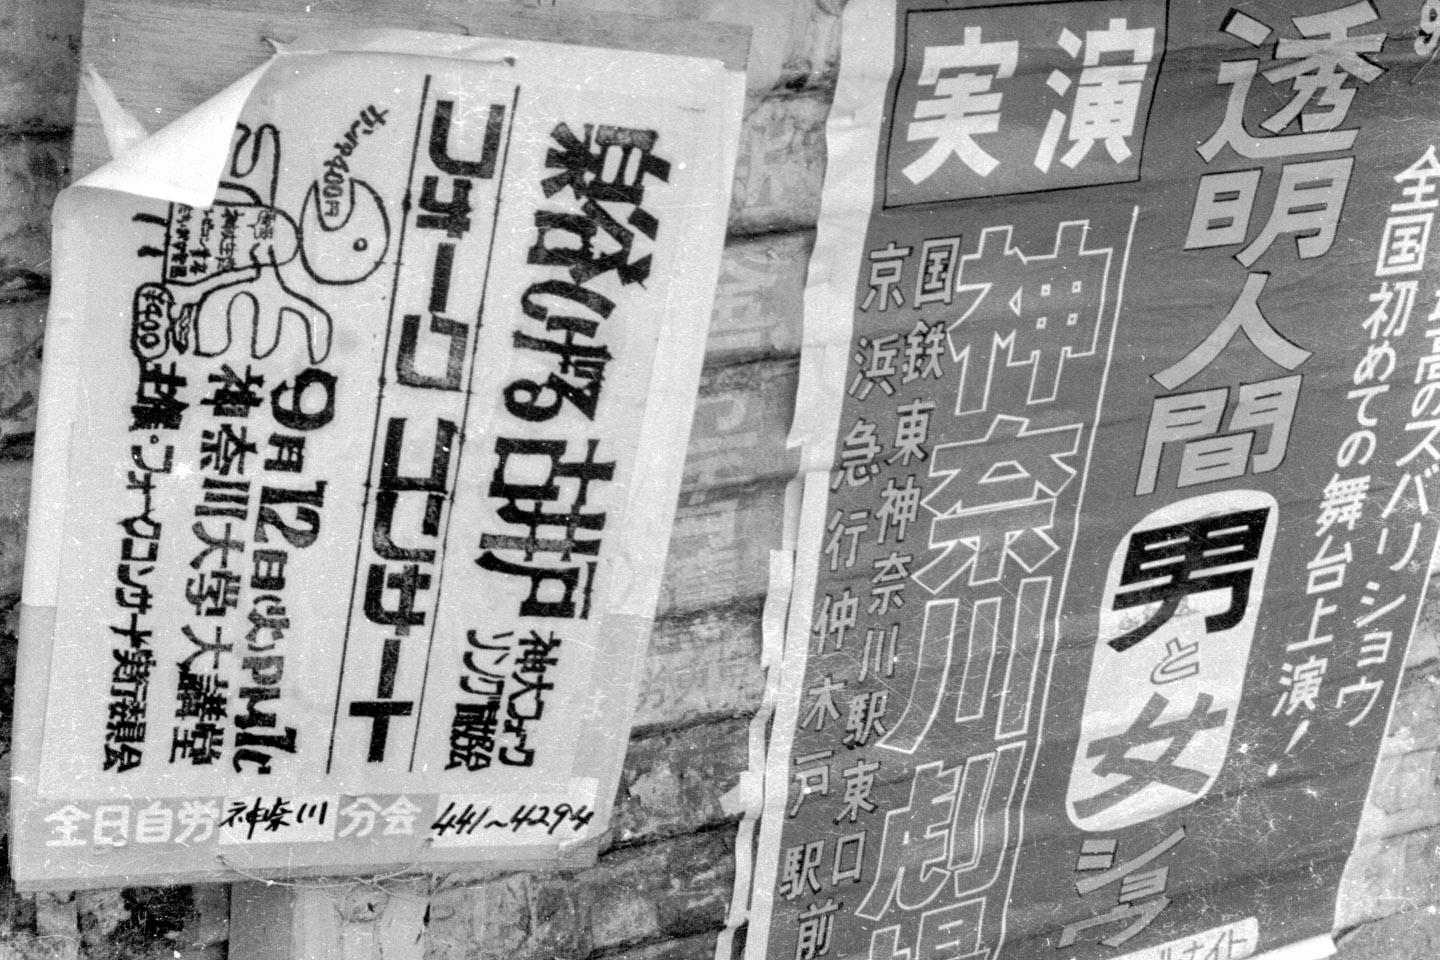 泉谷しげる 古井戸
フォーク コンサート
神大フォーク
ソング愛好会
9月12日(火)PM1じ
神奈川大学大講堂
主権・フォークコンサート実行委員会
ガンバ400円
¥400
全日自労 神奈川 分会 441~4294
実演
透明人間
男と女
ショウ
最高のズバリショウ
全国初めての舞台上演!
神奈川劇場
国鉄東神奈川駅東口
京浜急行仲木戸駅前
ールナイト